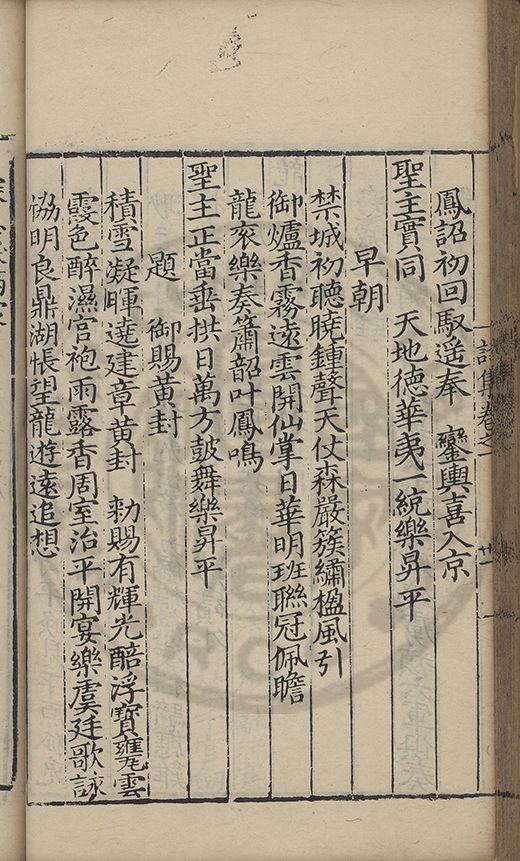 鳳詔初回馭遥奉　鑾輿喜入京
聖主實同　天地德華夷一統樂昇平
早朝
禁城初聽曉鍾聲天仗森嚴簇繡楹風引
御爐香霧遠雲開仙掌日華明班聯冠佩瞻
龍衮樂奏簫韶叶鳳鳴
聖主正當垂拱日萬方皷舞樂昇平
題　御賜黃封
積雪凝暉遶建章黃封　勑賜有輝光醅浮寶甕雲
霞色醉濕宫袍雨露香周室治平開宴樂虞廷歌詠
協明良鼎湖悵望龍遊遠追想
詩集卷之一
廿一